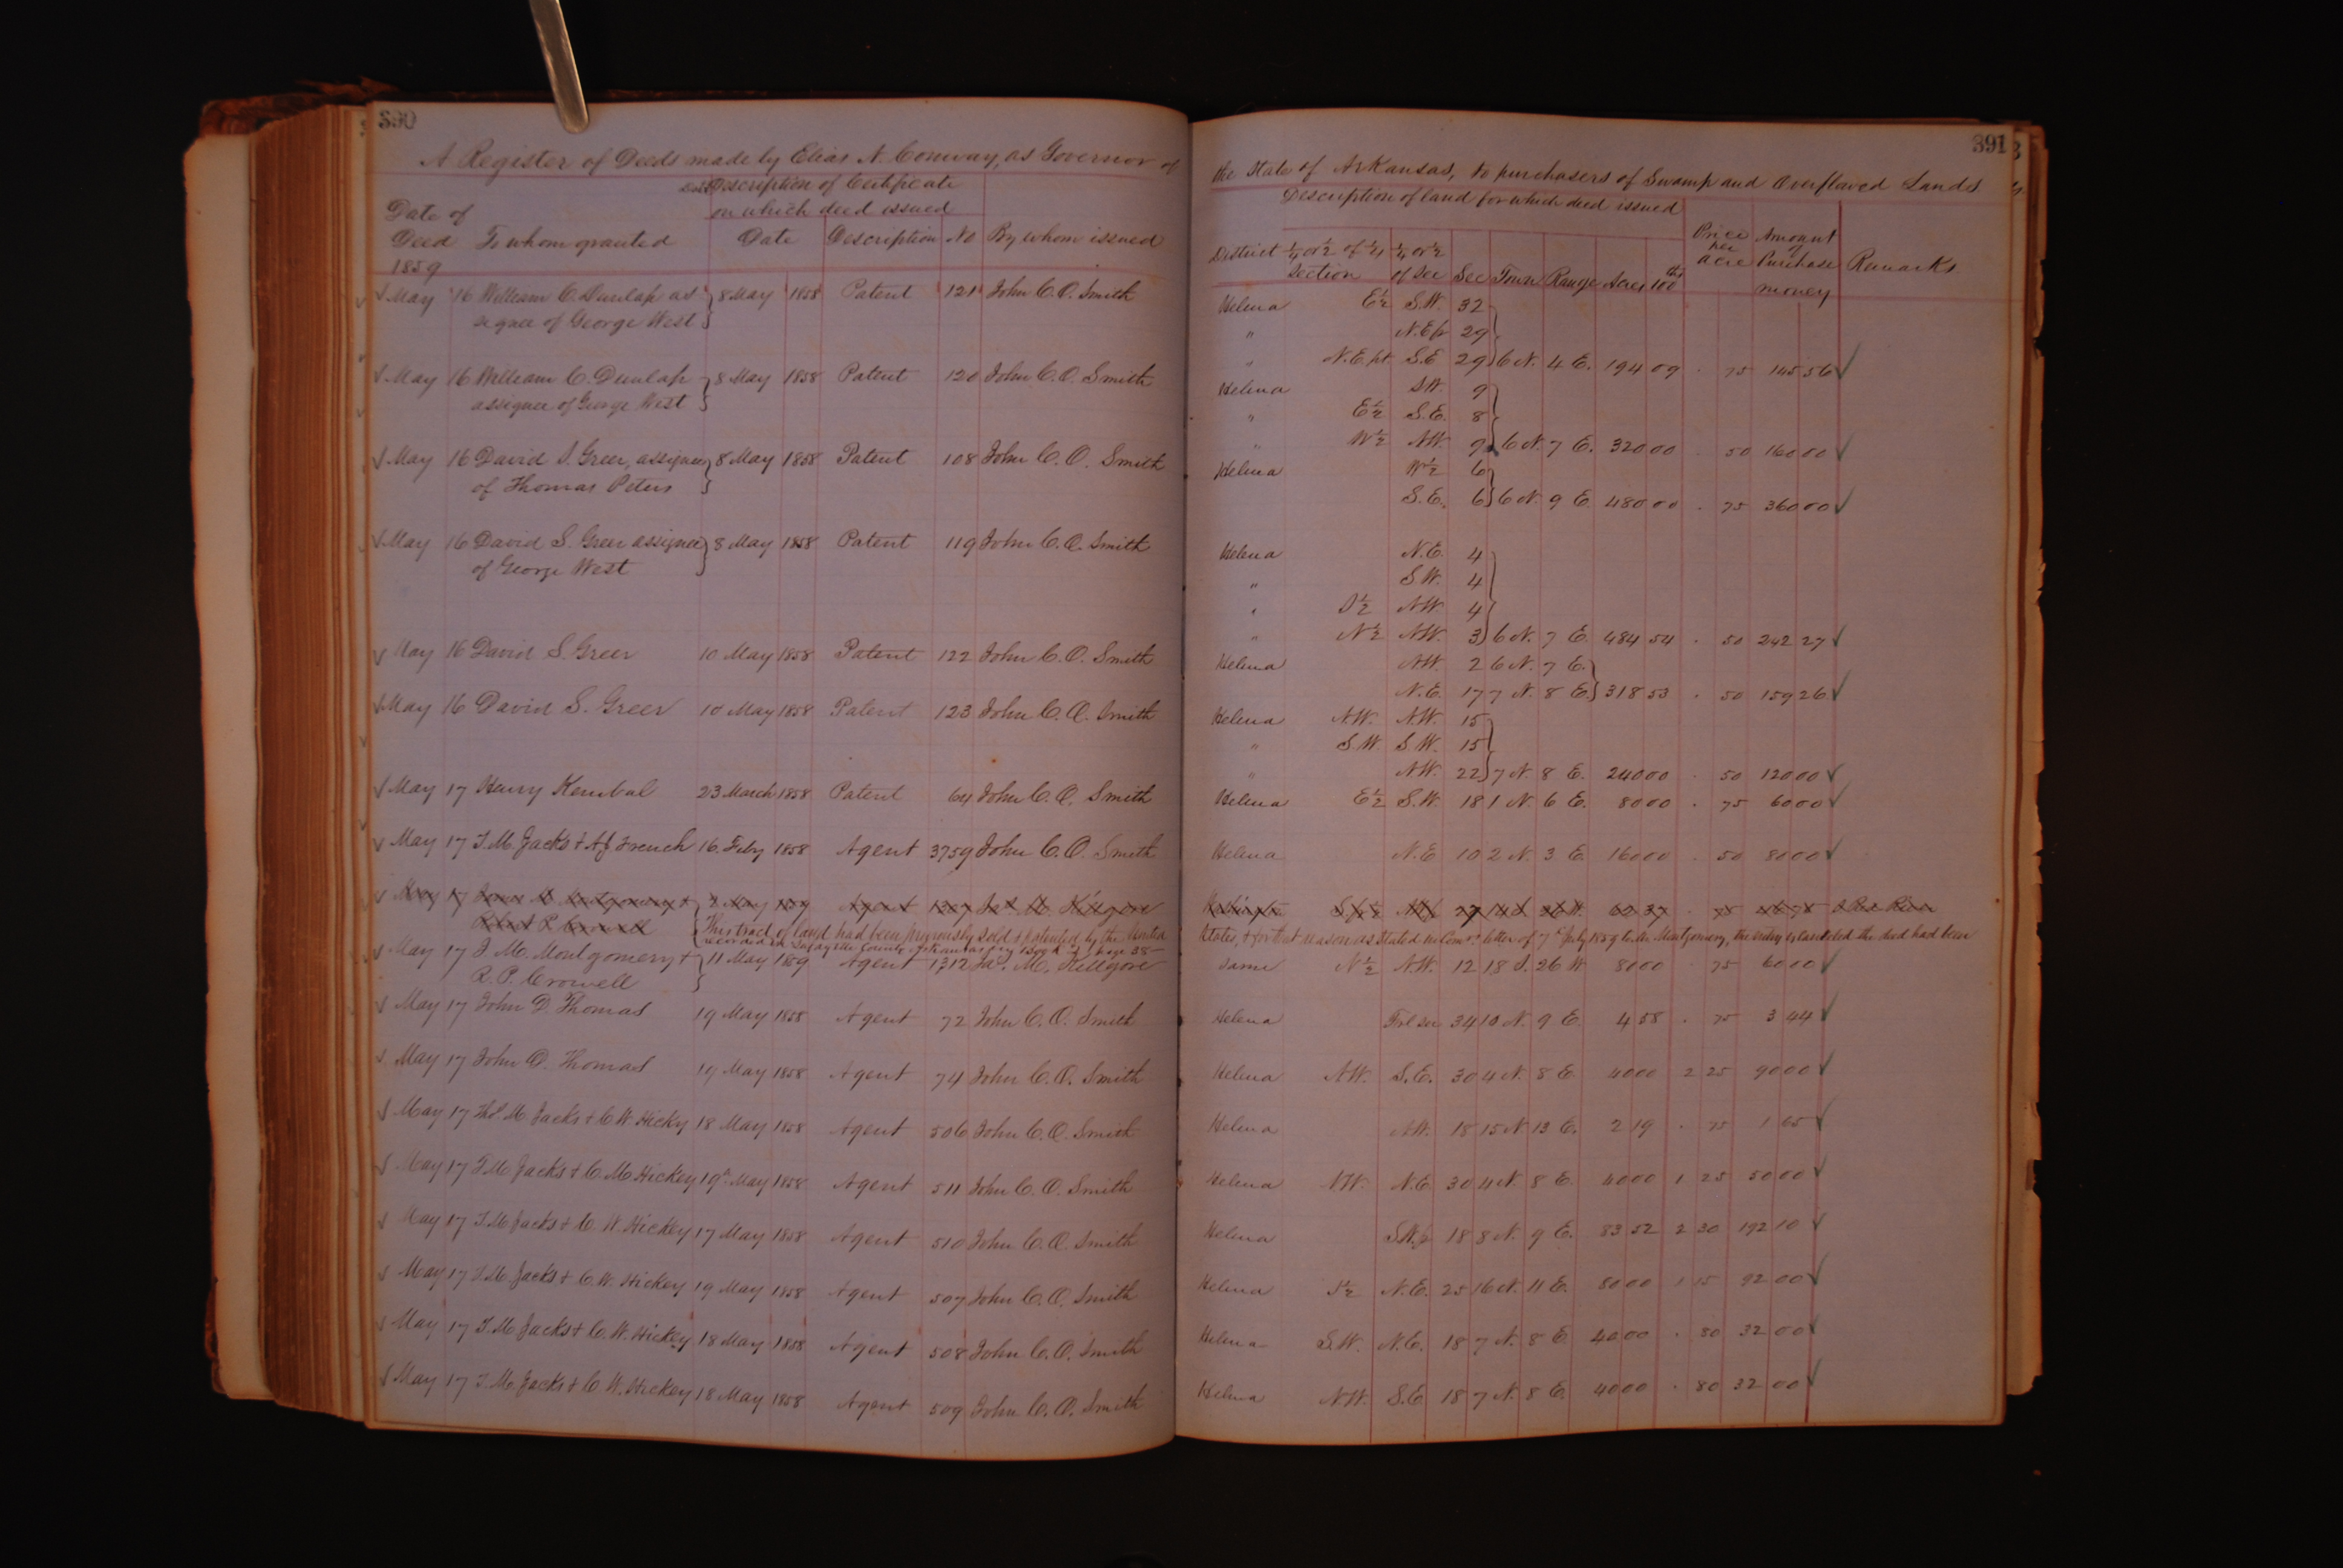 390
A Register of Deeds made by Elias N. Conway, as Governor of
Description of Certificate
on which deed issued
Date of
Deed To whom granted Date Description No By whom issued
1859
May 16 William C. Dunlap as- 8 May 1858 Patent 121 John C. O. Smith
signee of George West
May 16 William C. Dunlap 8 May 1858 Patent 120 John C. O. Smith
assignee of George West
May 16 David S. Greer, assignee 8 May 1858 Patent 108 John C. O. Smith
of Thomas Peters
May 16 David S. Greer assignee 8 May 1858 Patent 119 John C. O. Smith
of George West
May 16 David S. Greer 10 May 1858 Patent 122 John C. O. Smith
May 16 David S. Greer 10 May 1858 Patent 123 John C. O. Smith
May 17 Henry Kembal 23 March 1858 Patent 64 John C. O. Smith
May 17 T. M. Jacks & A J French 16 Feby 1858 Agent 3759 John C. O. Smith
May 17 Montgomery & May 1859 Agent 1307 Jas. M. Killgore
Robert P. Crowell This tract of land had been previously sold & patented by the United
recorded in Lafayette County
May 17 J. M. Montgomery & 11 May 1859 Agent 1312 Jas. M. Killgore
R. P. Crowell
May 17 John D. Thomas 19 May 1858 Agent 72 John C. O. Smith
May 17 John D. Thomas 19 May 1858 Agent 74 John C. O. Smith
May 17 Thos. M. Jacks & C W. Hicky 18 May 1858 Agent 506 John C. O. Smith
May 17 T. M. Jacks & C. M. Hickey 19th May 1858 Agent 511 John C. O. Smith
May 17 T. M. Jacks & C. W. Hickey 17 May 1858 Agent 510 John C. O. Smith
May 17 T. M. Jacks & C. W. Hickey 19 May 1858 Agent 507 John C. O. Smith
May 17 T. M. Jacks & C. W. Hickey 18 May 1858 Agent 508 John C. O. Smith
May 17 T. M. Jacks & C. W. Hickey 18 May 1858 Agent 509 John C. O. Smith
391
the State of Arkansas, to purchasers of Swamp and Overflowed Lands
Description of land for which deed issued
District ¼ or ½ of ¼ ¼ or ½ Price Amount
Section of Sec Sec Town Range Acres 100ths per acre of Purchase money Remarks
Helena E½ S.W. 32
" N.E fr 29
" N.E. pt. S.E 29 6 N. 4 E. 194 09 . 75 145 56
Helena S.W. 9
" E½ S.E. 8
" W½ N.W. 9 6 N. 7 E. 320 00 . 50 160 00
Helena W½ 6
S.E. 6 6 N. 9 E. 480 00 . 75 360 00
Helena N.E. 4
" S.W. 4
" S½ N.W. 4
" N½ N.W. 3 6 N. 7 E. 484 54 . 50 242 27
Helena N.W. 2 6 N. 7 E.
N.E. 17 7 N. 8 E. 318 53 . 50 159 26
Helena N.W. N.W. 15
" S.W. S.W. 15
" N.W. 22 7 N. 8 E. 240 00 . 50 120 00
Helena E½ S.W. 18 1 N. 6 E. 80 00 . 75 60 00
Helena N.E 10 2 N. 3 E. 160 00 . 50 80 00
Washington 27 26 W. 62 37 . 75 46 78 Red River
States, & for that reason as stated in Comrs. letter of 7th July 1859 to Mr. Montgomery, the entry is canceled the deed had been
Same N½ N.W. 12 18 S. 26 W 80 00 75 60 00
Helena Frl sec 34 10 N. 9 E. 4 58 . 75 3 44
Helena N.W. S.E. 30 4 N. 8 E. 40 00 2 25 90 00
Helena N.W. 18 15 N 13 E. 2 19 . 75 1 65
Helena N.W. N.E. 30 4 N. 8 E. 40 00 1 25 50 00
Helena S.W. fr 18 8 N. 9 E. 83 52 2 30 192 10
Helena S½ N.E. 25 16 N. 11 E. 80 00 1 15 92 00
Helena S.W. N.E. 18 7 N. 8 E 40 00 . 80 32 00
Helena N.W. S.E 18 7 N. 8 E. 40 00 . 80 32 00